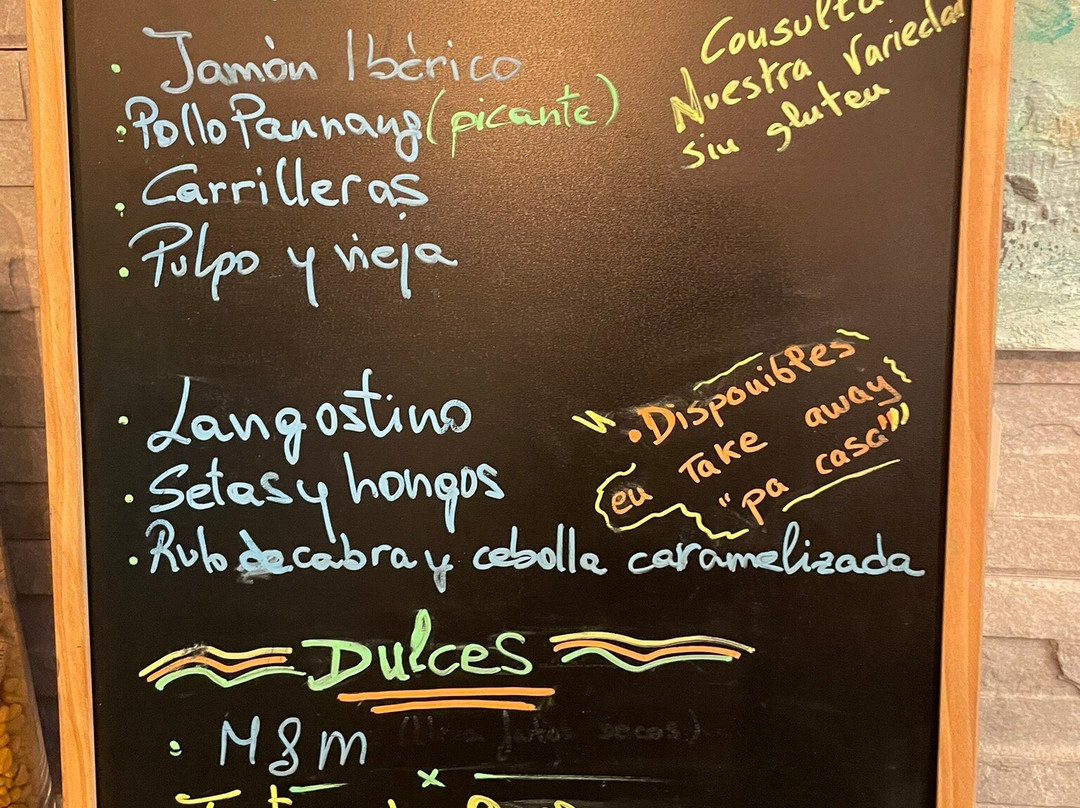 Consulta
Nuestra variedad
sin gluten
· Jamón Ibérico
· Pollo Pannang (picante)
· Carrilleras
· Pulpo y vieja
· Langostino
· Setas y hongos
· Rulo de cabra y cebolla caramelizada
· Disponibles
en Take away
"pa casa"
Dulces
· M&m
secos)